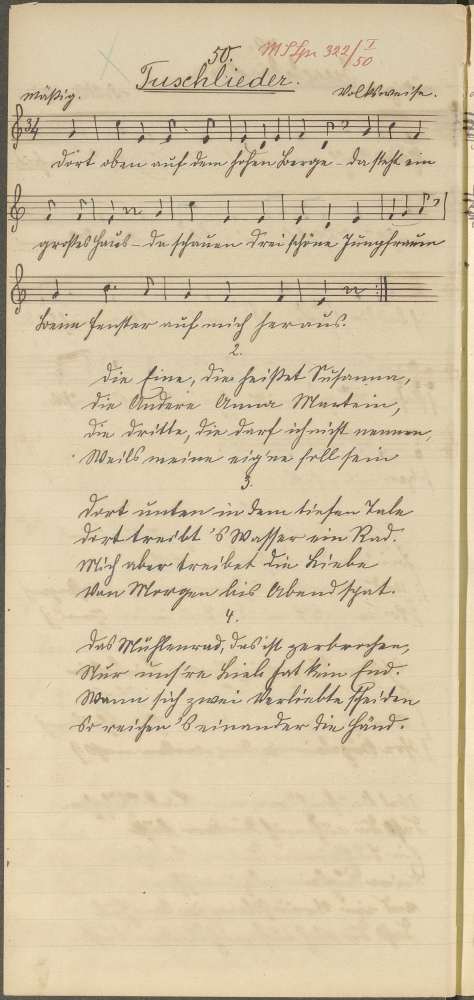 50.
Tuschlieder.
Mäßig.
Volksweise.
Dort oben auf dem hohen Berge – da steht ein
großes Haus – da schauen drei schöne Jungfrauen
beim Fenster auf mich heraus.
2.
Die Eine, die heißet Susanna,
die Andere Anna Martein,
die dritte, die darf ich nicht nennen,
Weils meine eig'ne soll sein
3.
Dort unten in dem tiefen Tale
dort treibt 's Wasser ein Rad.
Mich aber treibet die Liebe
von Morgen bis Abend spat.
4.
Das Mühlenrad, das ist zerbrochen,
Nur uns're Lieb hat kein End.
Wann sich zwei Verliebte scheiden
So reichen 's einander die Händ.